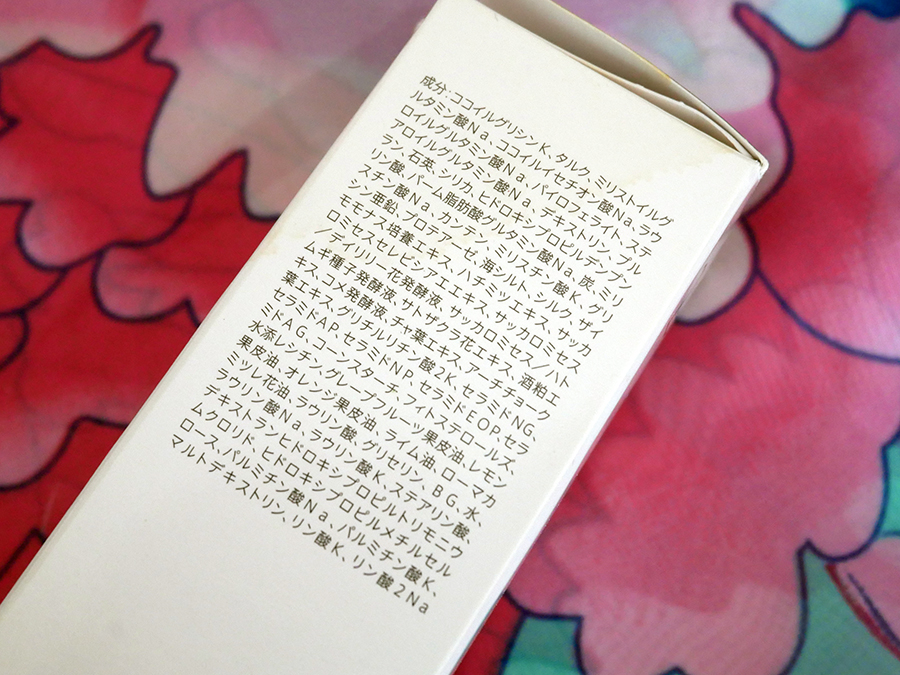 成分:ココイルグリシンK、タルク、ミリストイルグ
ルタミン酸Na、ココイルイセチオン酸Na、ラウ
ロイルグルタミン酸Na、パイロフェライト、ステ
アロイルグルタミン酸Na、デキストリン、プルラ
ン、石英、シリカ、ヒドロキシプロピルデンプン
リン酸、パーム脂肪酸グルタミン酸Na、炭、ミリ
スチン酸Na、カンテン、ミリスチン酸K、グリ
シン亜鉛、プロテアーゼ、海シルト、シルク、ザイ
モモナス培養エキス、ハチミツエキス、サッカ
ロミセスセレビシアエエキス、サッカロミセス
/デイリリー花発酵液、サッカロミセス/ハト
ムギ種子発酵液、サトザクラ花エキス、酒粕エ
キス、コメ発酵液、チャ葉エキス、アーチチョーク
葉エキス、グリチルリチン酸2K、セラミドNG、
セラミドAP、セラミドNP、セラミドEOP、セラ
ミドAG、コーンスターチ、フィトステロールズ、
水添レシチン、グレープフルーツ果皮油、レモン
果皮油、オレンジ果皮油、ライム油、ローマカ
ミツレ花油、ラウリン酸、グリセリン、BG、水、
ラウリン酸Na、ラウリン酸K、ステアリン酸、
デキストランヒドロキシプロピルトリモニウ
ムクロリド、ヒドロキシプロピルメチルセル
ロース、パルミチン酸Na、パルミチン酸K、
マルトデキストリン、リン酸K、リン酸2Na